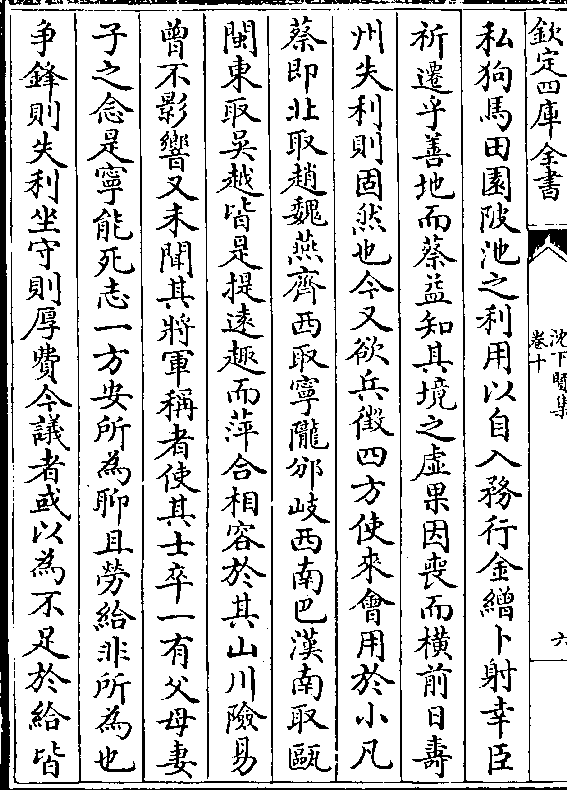 欽定四庫全書
沈下賢集
卷十
六
私狗馬田園陂池之利用以自入務行金繒卜射幸臣
祈遷乎善地而蔡益知其境之虛果因喪而橫前日壽
州失利則固然也今又欲兵徵四方使來會用於小凡
蔡即北取趙魏燕齊西取寧隴邠岐西南巴漢南取甌
閩東取吳越皆是提遠趣而萍合相容於其山川險易
曾不影響又未聞其將軍稱者使其士卒一有父母妻
子之念是寧能死志一方安所為聊且勞給非所為也
争鋒則失利坐守則厚費今議者或以為不足於給皆